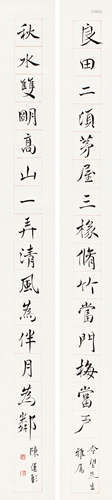 良田二頃茅屋三椽脩竹當門梅當戶
雅屬
秋水雙明高山一弄清風為伴月為鄰